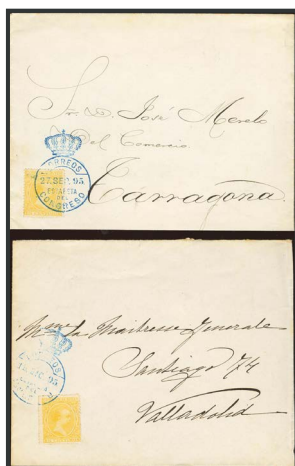 Sr. D. José Morelo
Del Comercio
Tarragona
CORREOS
27.SEP.95
ESTAFETA
DEL
CONGRESO
Mme la Maitresse Generale
Santiago 74
Valladolid
95